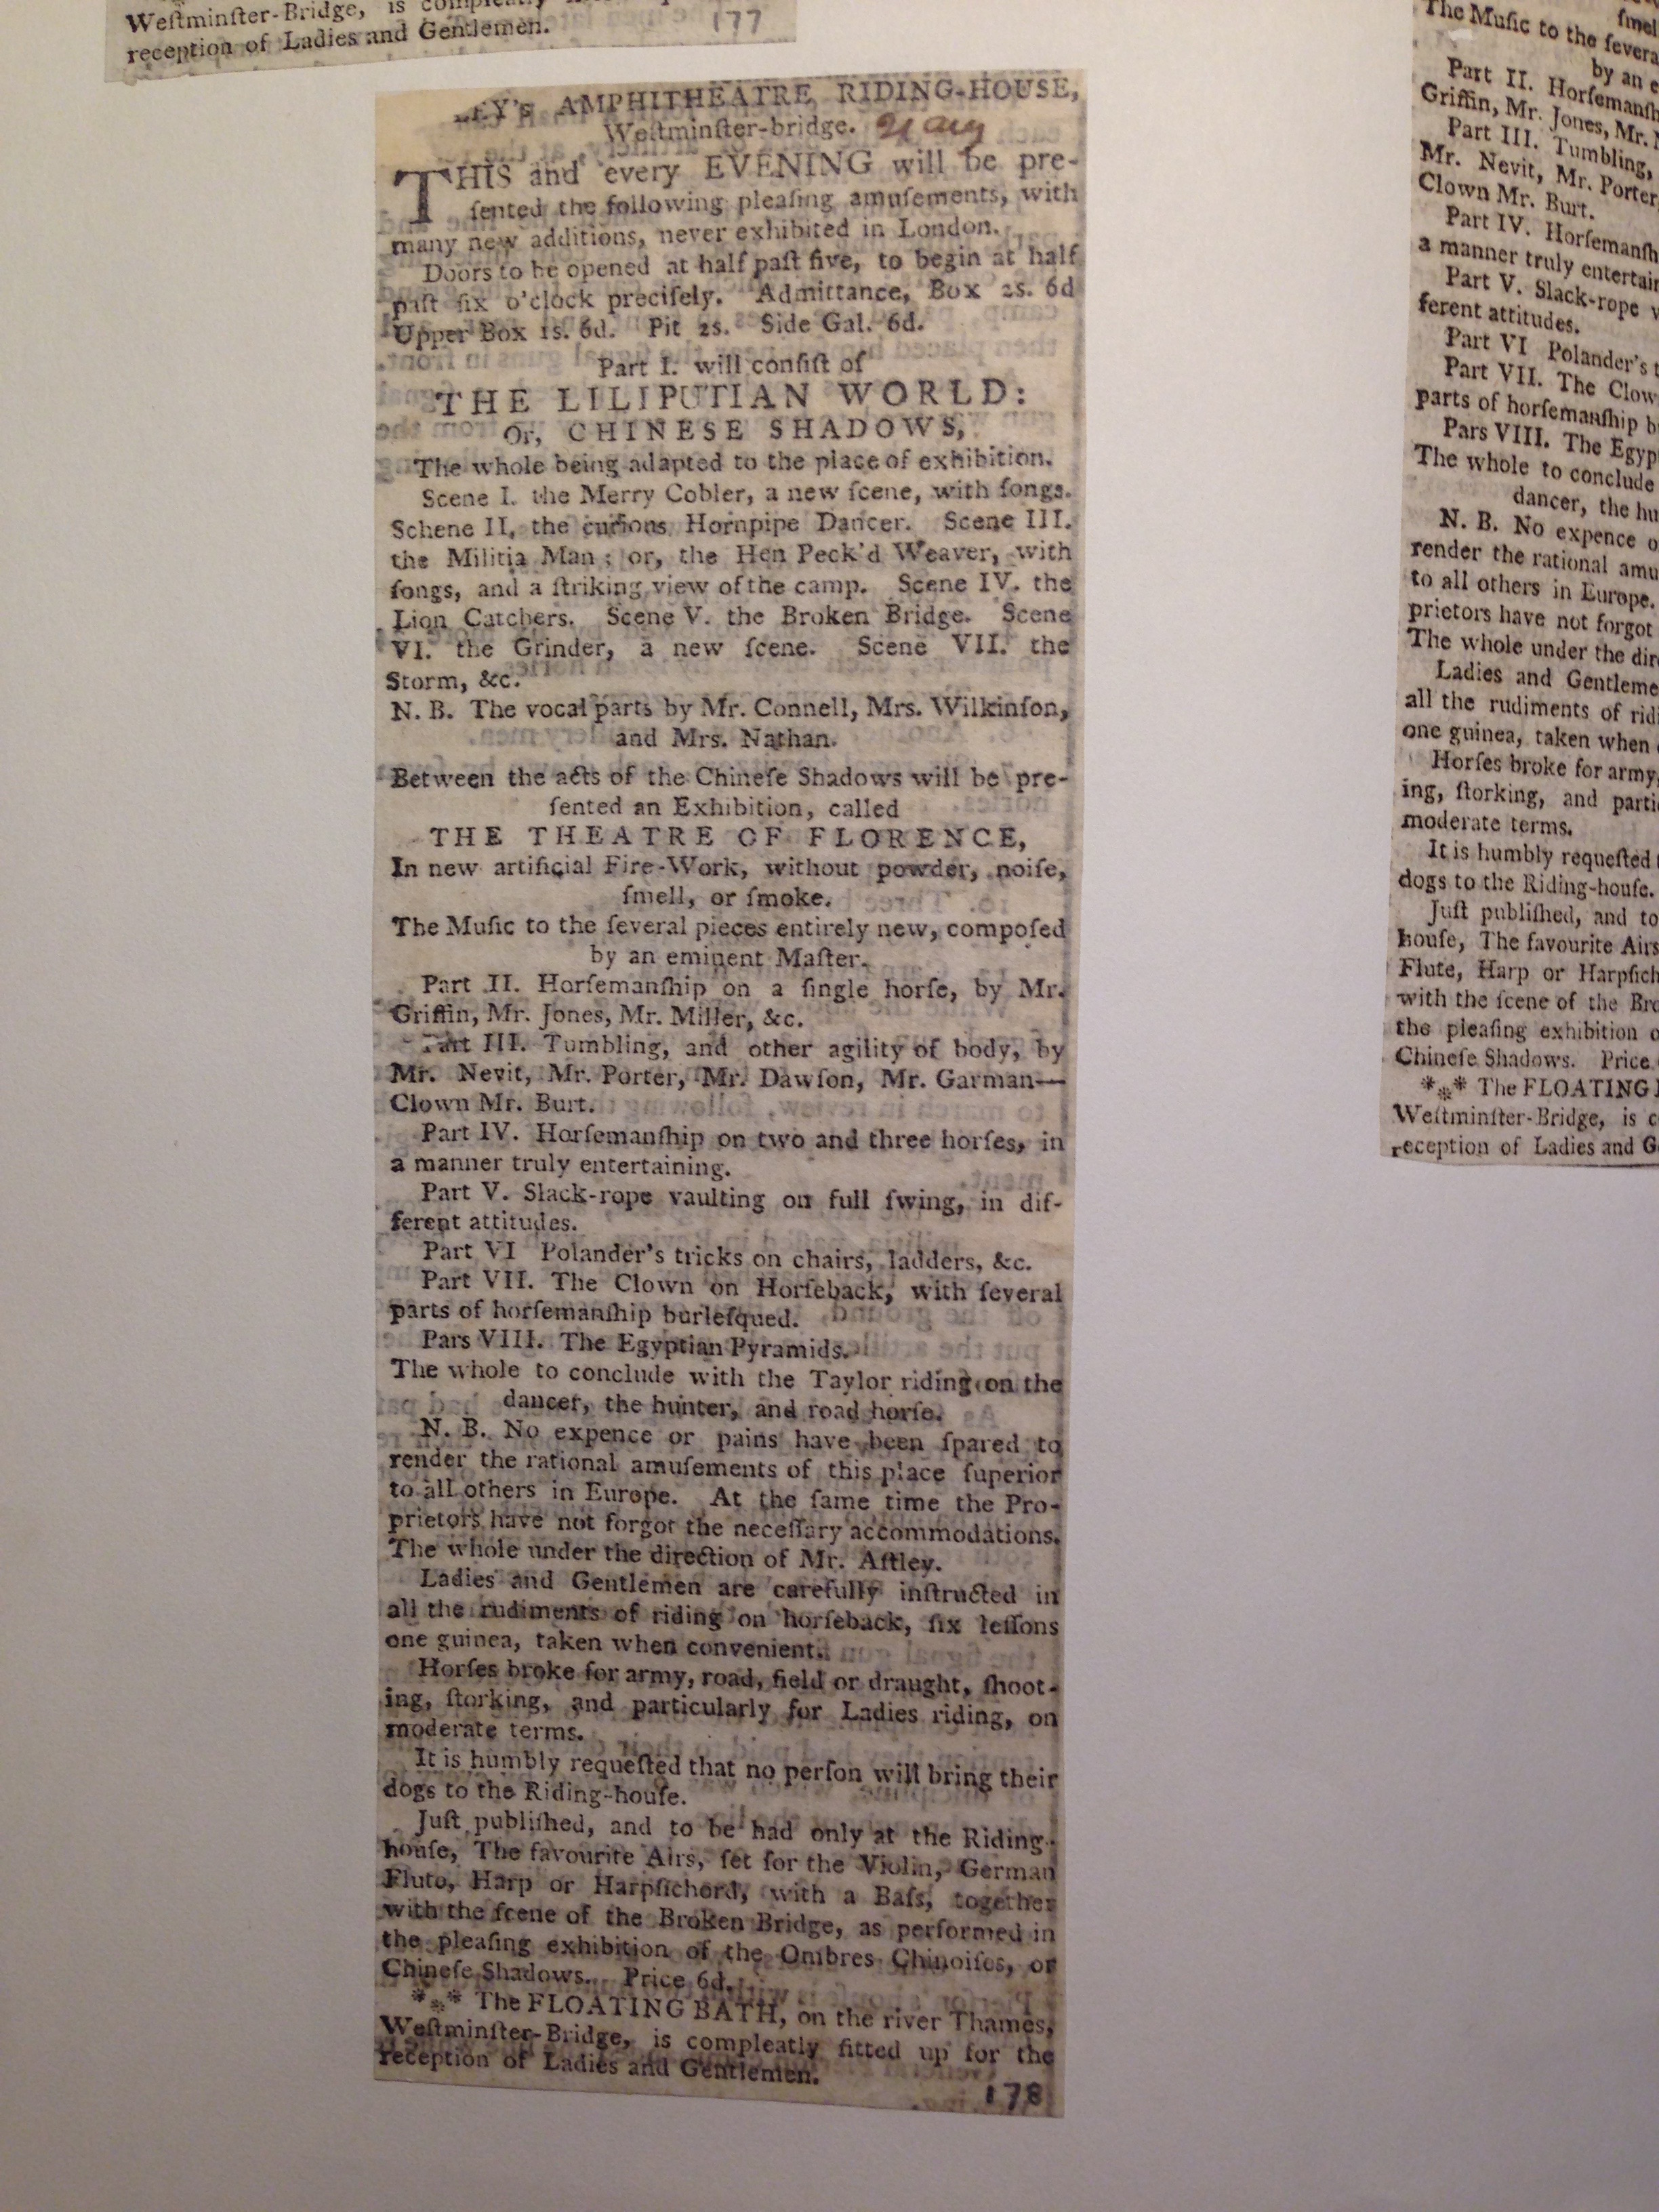 Weſtminſter-Bridge, is
reception of Ladies and Gentlemen.
177
EY's AMPHITHEATRE RIDING-HOUSE,
Weſtminſter-bridge. 21 aug
THIS and every EVENING will be pre-
ſented the following pleaſing amuſements, with
many new additions, never exhibited in London.
Doors to be opened at half paſt five, to begin at half
paſt ſix o'clock preciſely. Admittance, Box 2s. 6d
Upper Box 1s. 6d. Pit 2s. Side Gal. 6d.
Part I. will conſiſt of
THE LILIPUTIAN WORLD:
Or, CHINESE SHADOWS,
The whole being adapted to the place of exhibition.
Scene I. the Merry Cobler, a new ſcene, with ſongs.
Schene II, the curious Hornpipe Dancer. Scene III.
the Militia Man; or, the Hen Peck'd Weaver, with
ſongs, and a ſtriking view of the camp. Scene IV. the
Lion Catchers. Scene V. the Broken Bridge. Scene
VI. the Grinder, a new ſcene. Scene VII. the
Storm, &c.
N. B. The vocal parts by Mr. Connell, Mrs. Wilkinſon,
and Mrs. Nathan.
Between the acts of the Chineſe Shadows will be pre-
ſented an Exhibition, called
THE THEATRE OF FLORENCE,
In new artificial Fire-Work, without powder, noiſe,
ſmell, or ſmoke.
The Muſic to the ſeveral pieces entirely new, compoſed
by an eminent Maſter.
Part II. Horſemanſhip on a ſingle horſe, by Mr.
Griffin, Mr. Jones, Mr. Miller, &c.
Part III. Tumbling, and other agility of body, by
Mr. Nevit, Mr. Porter, Mr. Dawſon, Mr. Garman—
Clown Mr. Burt.
Part IV. Horſemanſhip on two and three horſes, in
a manner truly entertaining.
Part V. Slack-rope vaulting on full ſwing, in dif-
ferent attitudes.
Part VI Polander's tricks on chairs, ladders, &c.
Part VII. The Clown on Horſeback, with ſeveral
parts of horſemanſhip burleſqued.
Pars VIII. The Egyptian Pyramids.
The whole to conclude with the Taylor riding on the
dancer, the hunter, and road horſe.
N. B. No expence or pains have been ſpared to
render the rational amuſements of this place ſuperior
to all others in Europe. At the ſame time the Pro-
prietors have not forgot the neceſſary accommodations.
The whole under the direction of Mr. Aſtley.
Ladies and Gentlemen are carefully inſtructed in
all the rudiments of riding on horſeback, ſix leſſons
one guinea, taken when convenient.
Horſes broke for army, road, field or draught, ſhoot-
ing, ſtorking, and particularly for Ladies riding, on
moderate terms.
It is humbly requeſted that no perſon will bring their
dogs to the Riding-houſe.
Juſt publiſhed, and to be had only at the Riding-
houſe, The favourite Airs, ſet for the Violin, German
Flute, Harp or Harpſichord, with a Baſs, together
with the ſcene of the Broken Bridge, as performed in
the pleaſing exhibition of the Ombres Chinoiſes, or
Chineſe Shadows. Price 6d.
*⁎* The FLOATING BATH, on the river Thames,
Weſtminſter-Bridge, is compleatly fitted up for the
reception of Ladies and Gentlemen.
178
ſmel
The Muſic to the ſevera
by an e
Part II. Horſemanſh
Griffin, Mr. Jones, Mr.
Part III. Tumbling,
Mr. Nevit, Mr. Porter,
Clown Mr. Burt.
Part IV. Horſemanſh
a manner truly entertain
Part V. Slack-rope v
ferent attitudes.
Part VI Polander's t
Part VII. The Clow
parts of horſemanſhip b
Pars VIII. The Egyp
The whole to conclude
dancer, the hu
N. B. No expence o
render the rational amu
to all others in Europe.
prietors have not forgot
The whole under the dire
Ladies and Gentleme
all the rudiments of ridi
one guinea, taken when
Horſes broke for army,
ing, ſtorking, and parti
moderate terms.
It is humbly requeſted
dogs to the Riding-houſe.
Juſt publiſhed, and to
houſe, The favourite Airs
Flute, Harp or Harpſich
with the ſcene of the Bro
the pleaſing exhibition o
Chineſe Shadows. Price
*⁎* The FLOATING
Weſtminſter-Bridge, is c
reception of Ladies and G